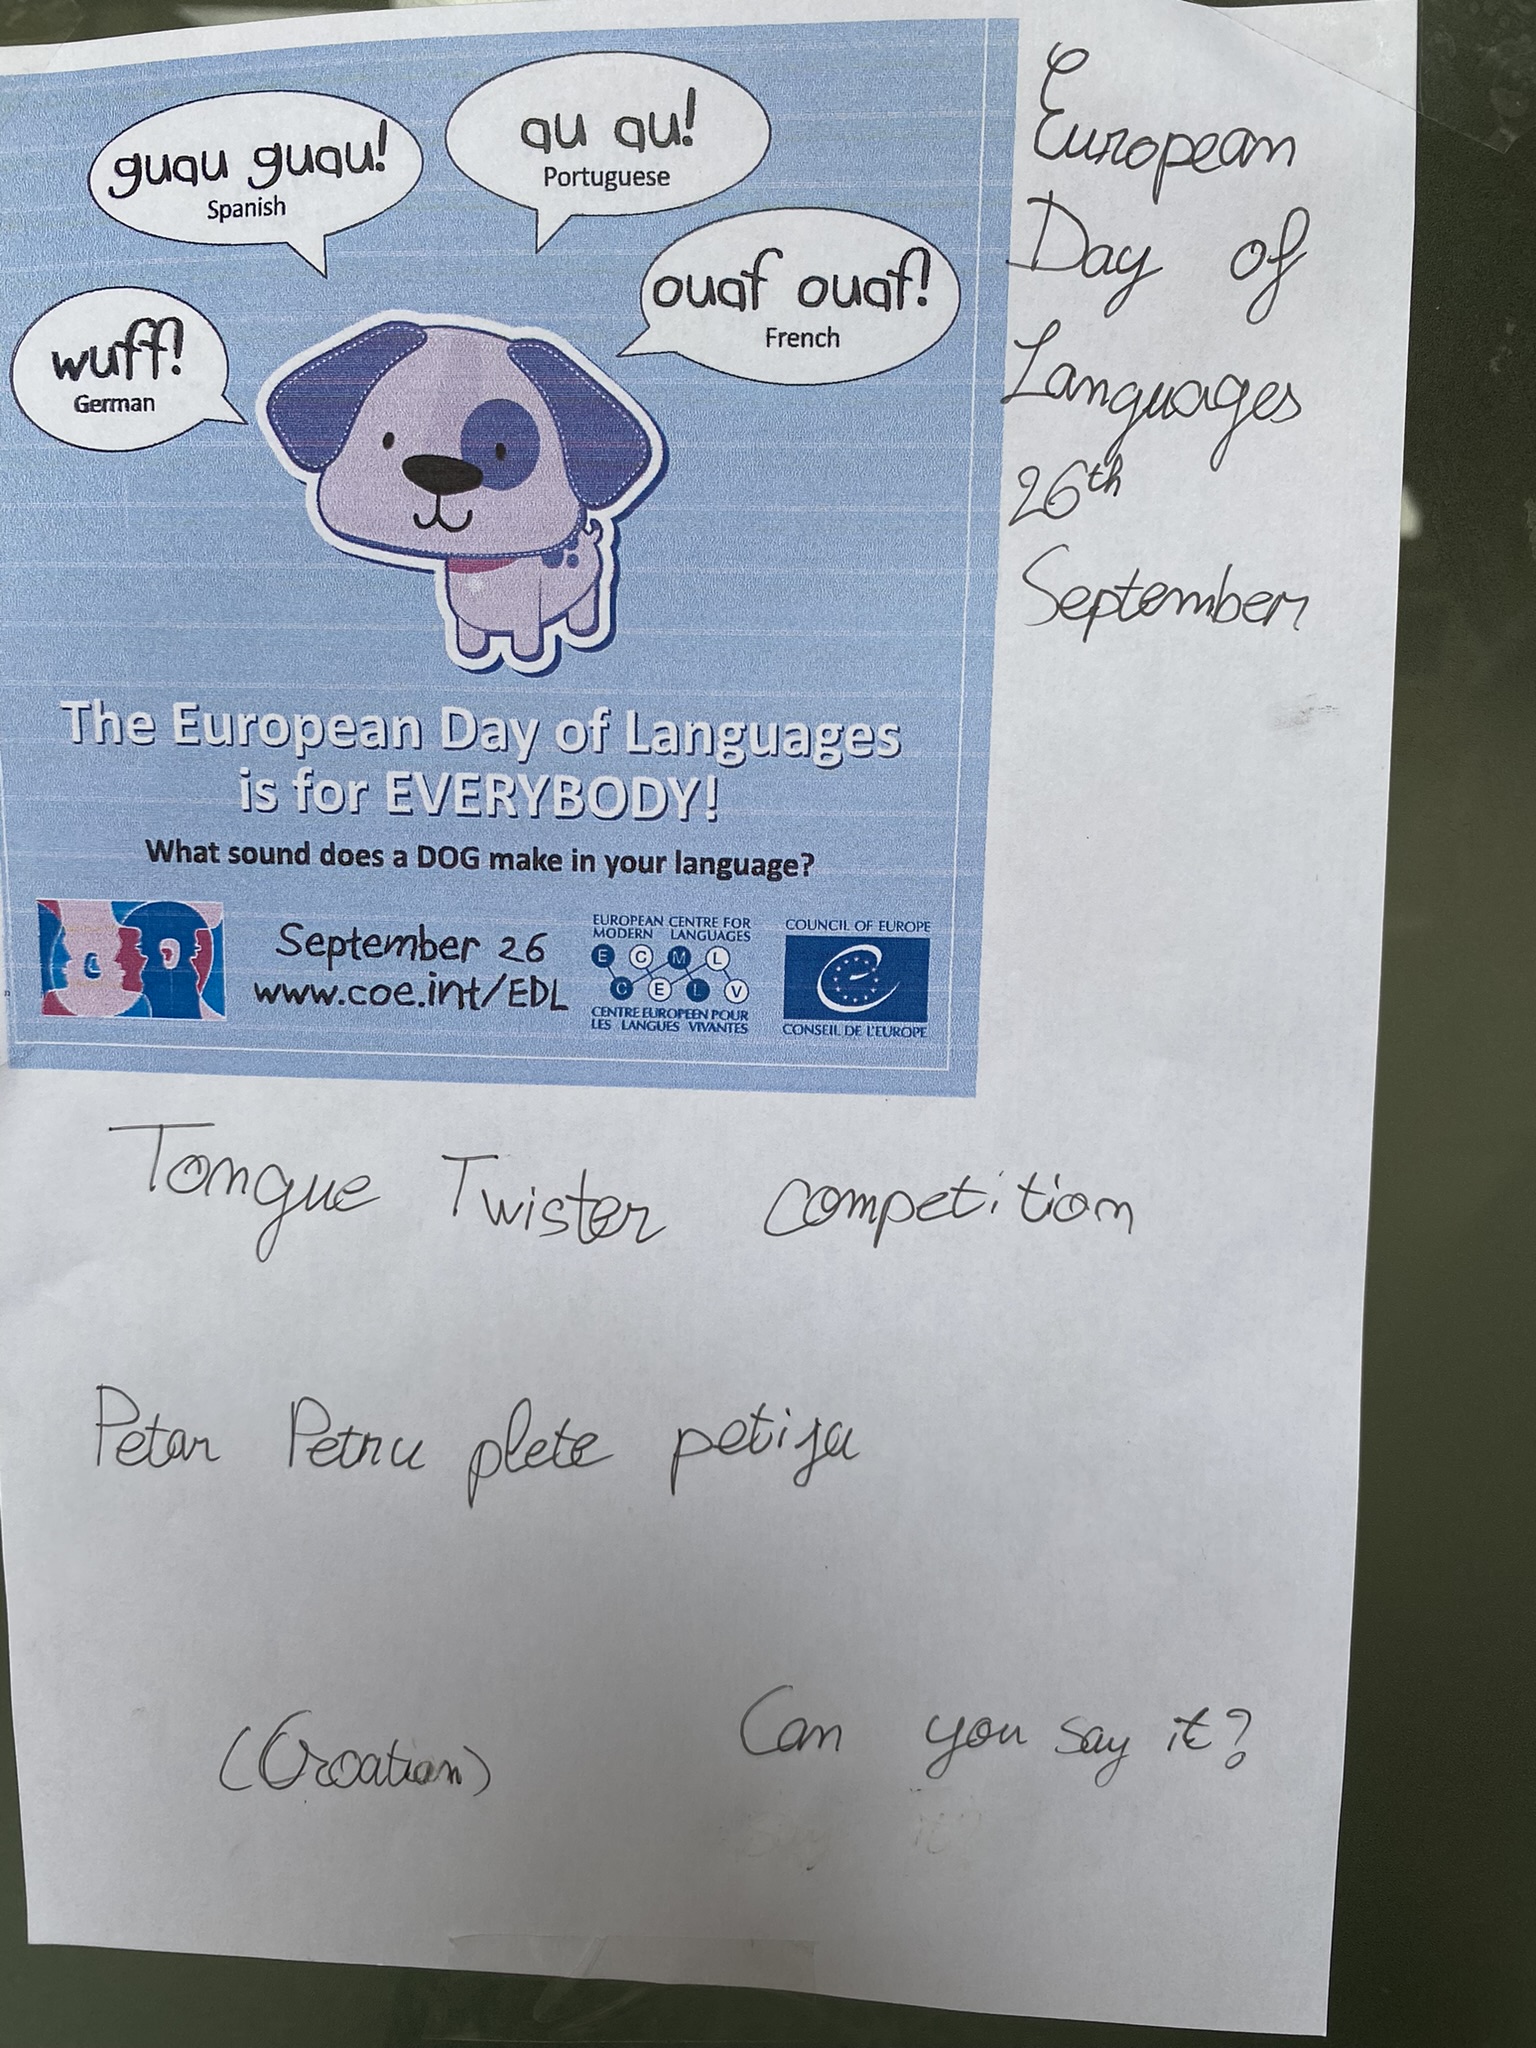 guau guau!
Spanish
au au!
Portuguese
ouaf ouaf!
French
wuff!
German
The European Day of Languages
is for EVERYBODY!
What sound does a DOG make in your language?
September 26
www.coe.int/EDL
EUROPEAN CENTRE FOR
MODERN LANGUAGES
E C M L
C E L V
CENTRE EUROPEEN POUR
LES LANGUES VIVANTES
COUNCIL OF EUROPE
CONSEIL DE L'EUROPE
European
Day of
Languages
26th
September
Tongue Twister competition
Petar Petru plete petlja
(Croatian)
Can you say it?